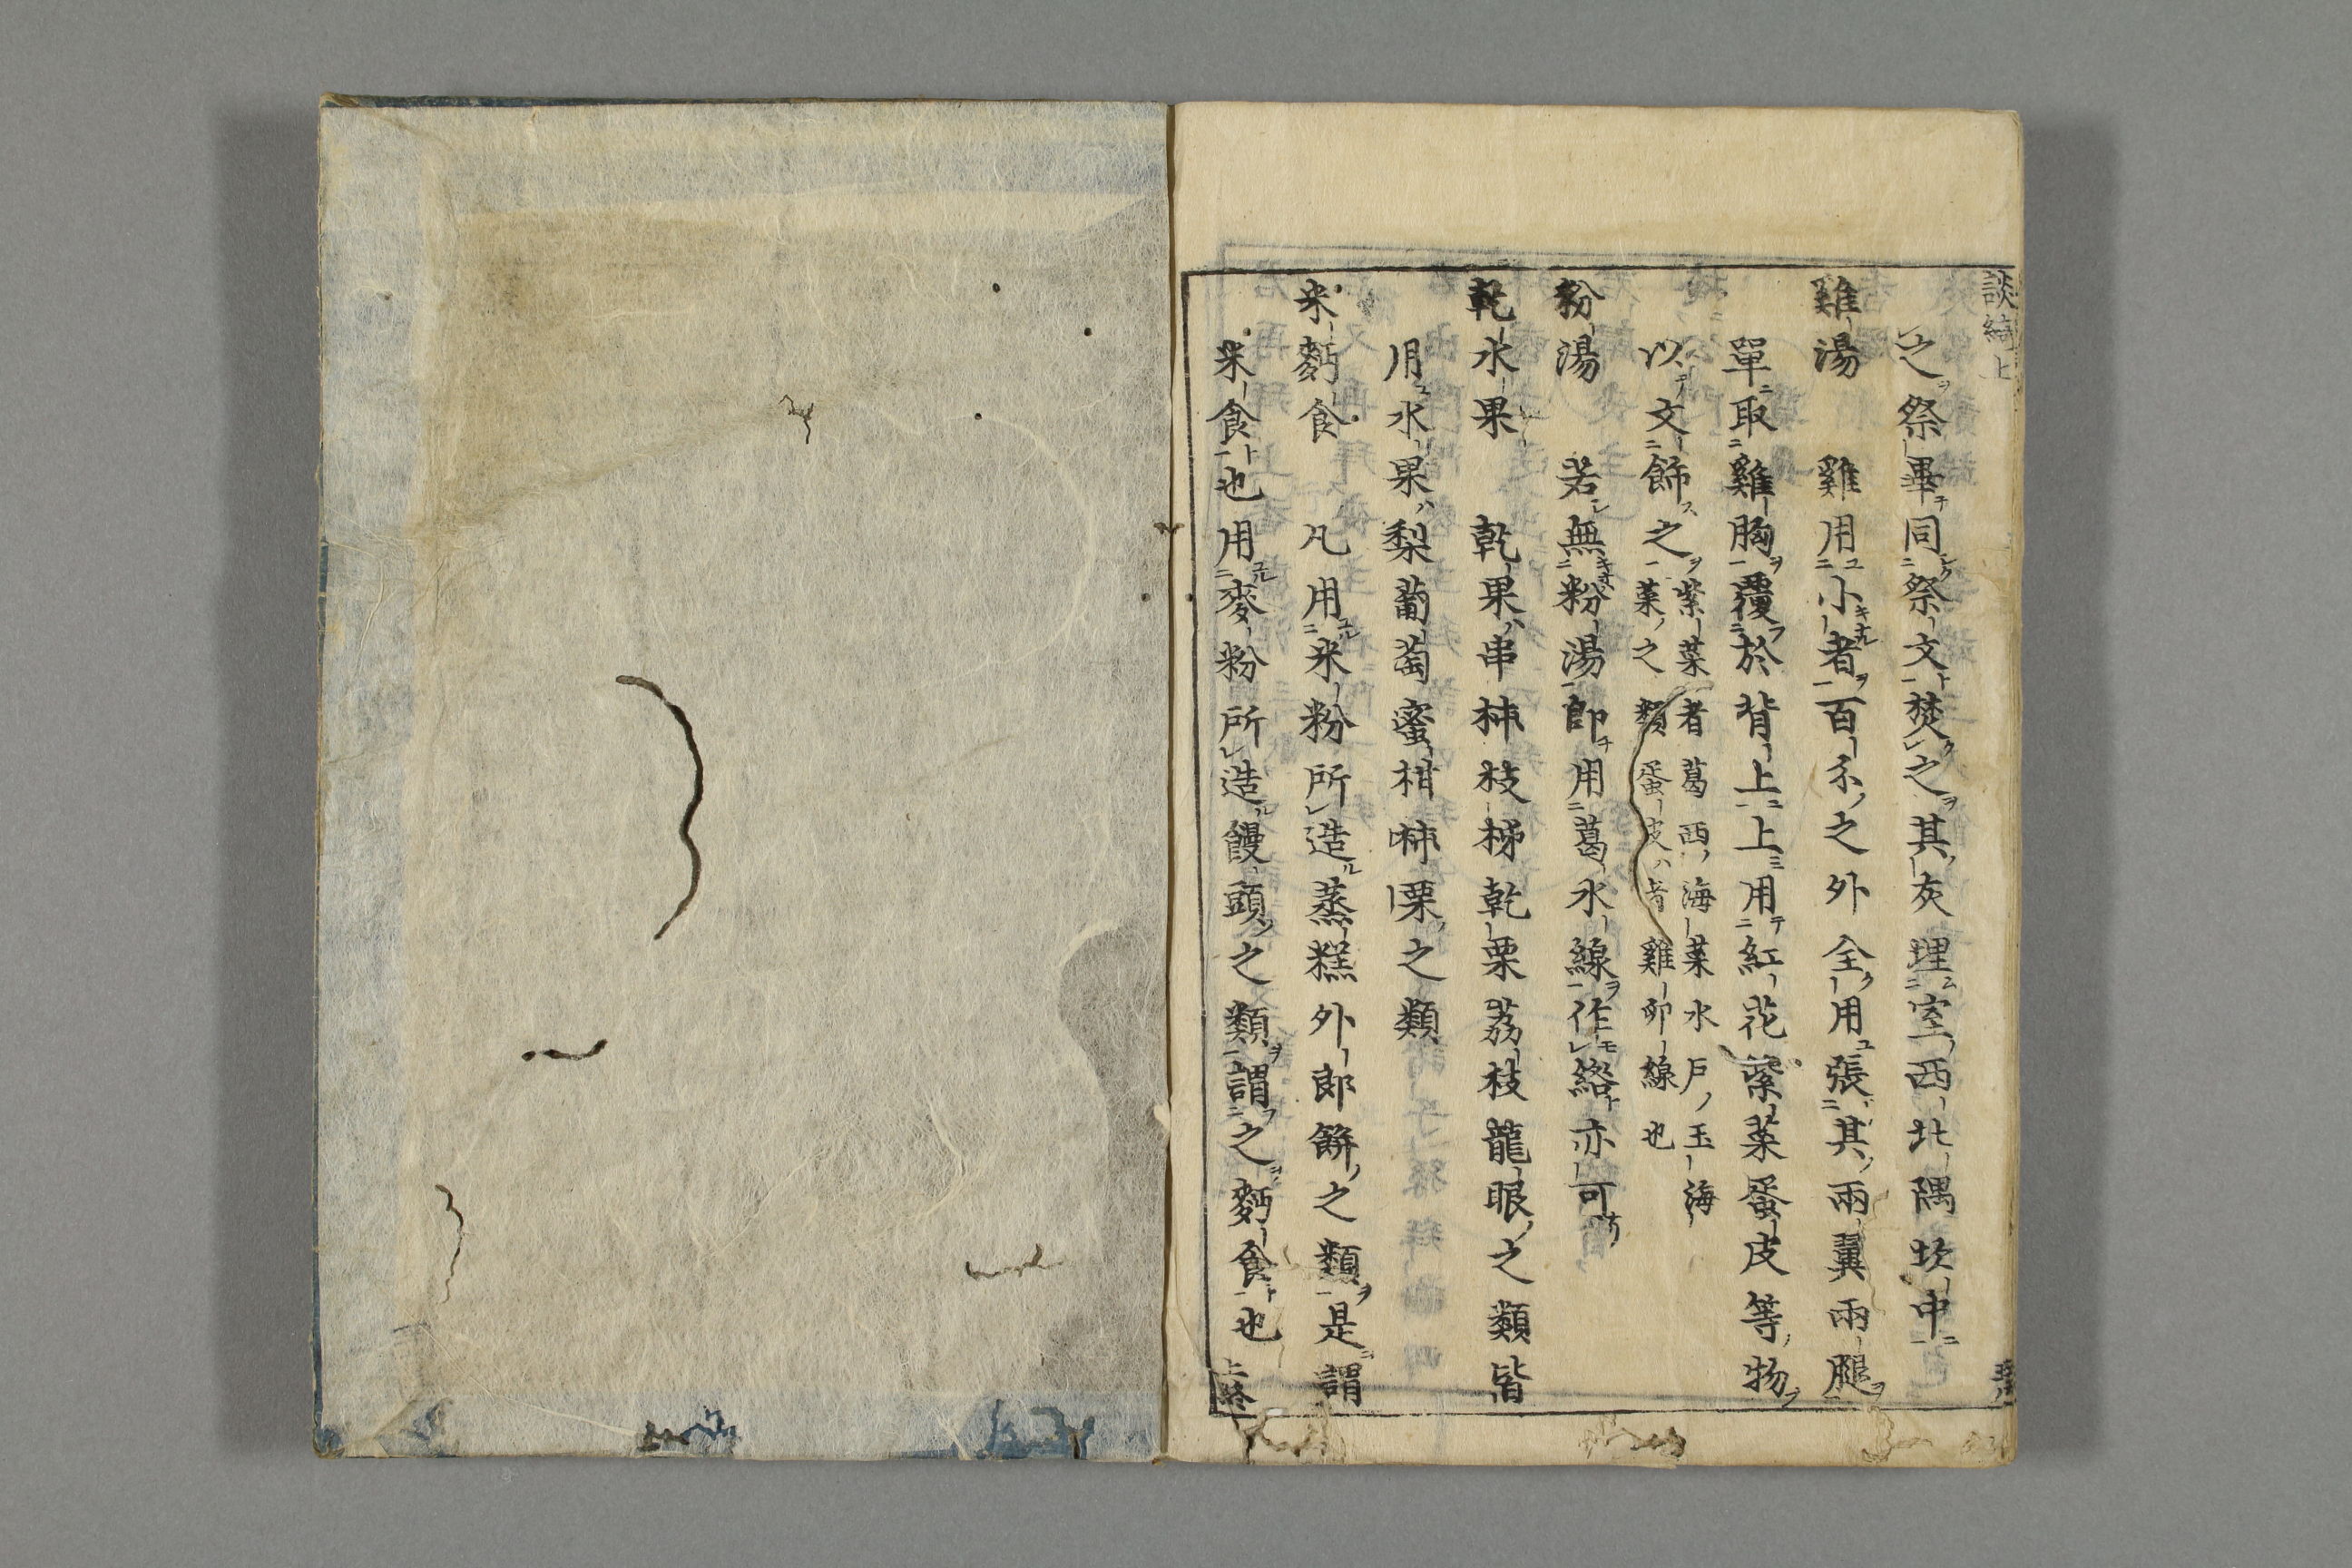 談綺上
之祭畢同祭文焚之其灰埋室西北隅坎中
雞湯 雞用小者百糸之外全用張其兩翼兩腿
單取雞胸覆於背上上用紅花紫菜蛋皮等物
以文飾之
紫菜者葛西海菜水戶玉海
菜之類蛋皮雞卵線也
粉湯 若無粉湯卽用葛水線作絡亦可
乾水果 乾果串柿枝柹乾栗荔枝龍眼之類皆
用水果梨葡萄蜜柑柿栗之類
米麪食 凡用米粉所造蒸糕外郎餅之類是謂
米食也用麥粉所造饅頭之類謂之麪食也
上終